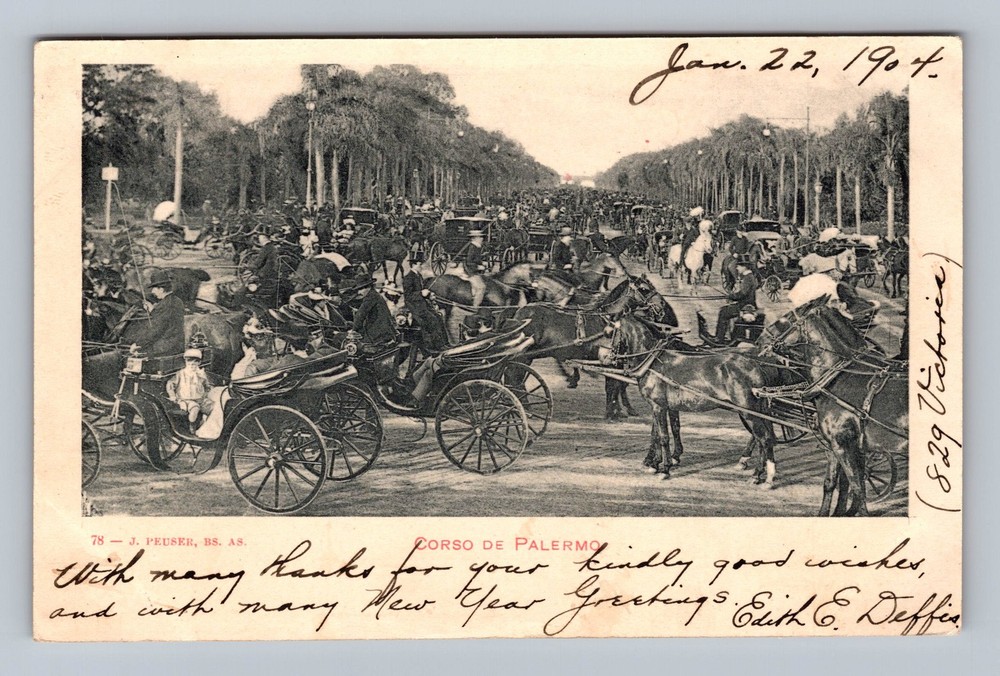 Jan. 22, 1904.
(829 Victoria)
78 — J. PEUSER, BS. AS.
CORSO DE PALERMO
With many thanks for your kindly good wishes,
and with many New Year Greetings. Edith E. Deffis.